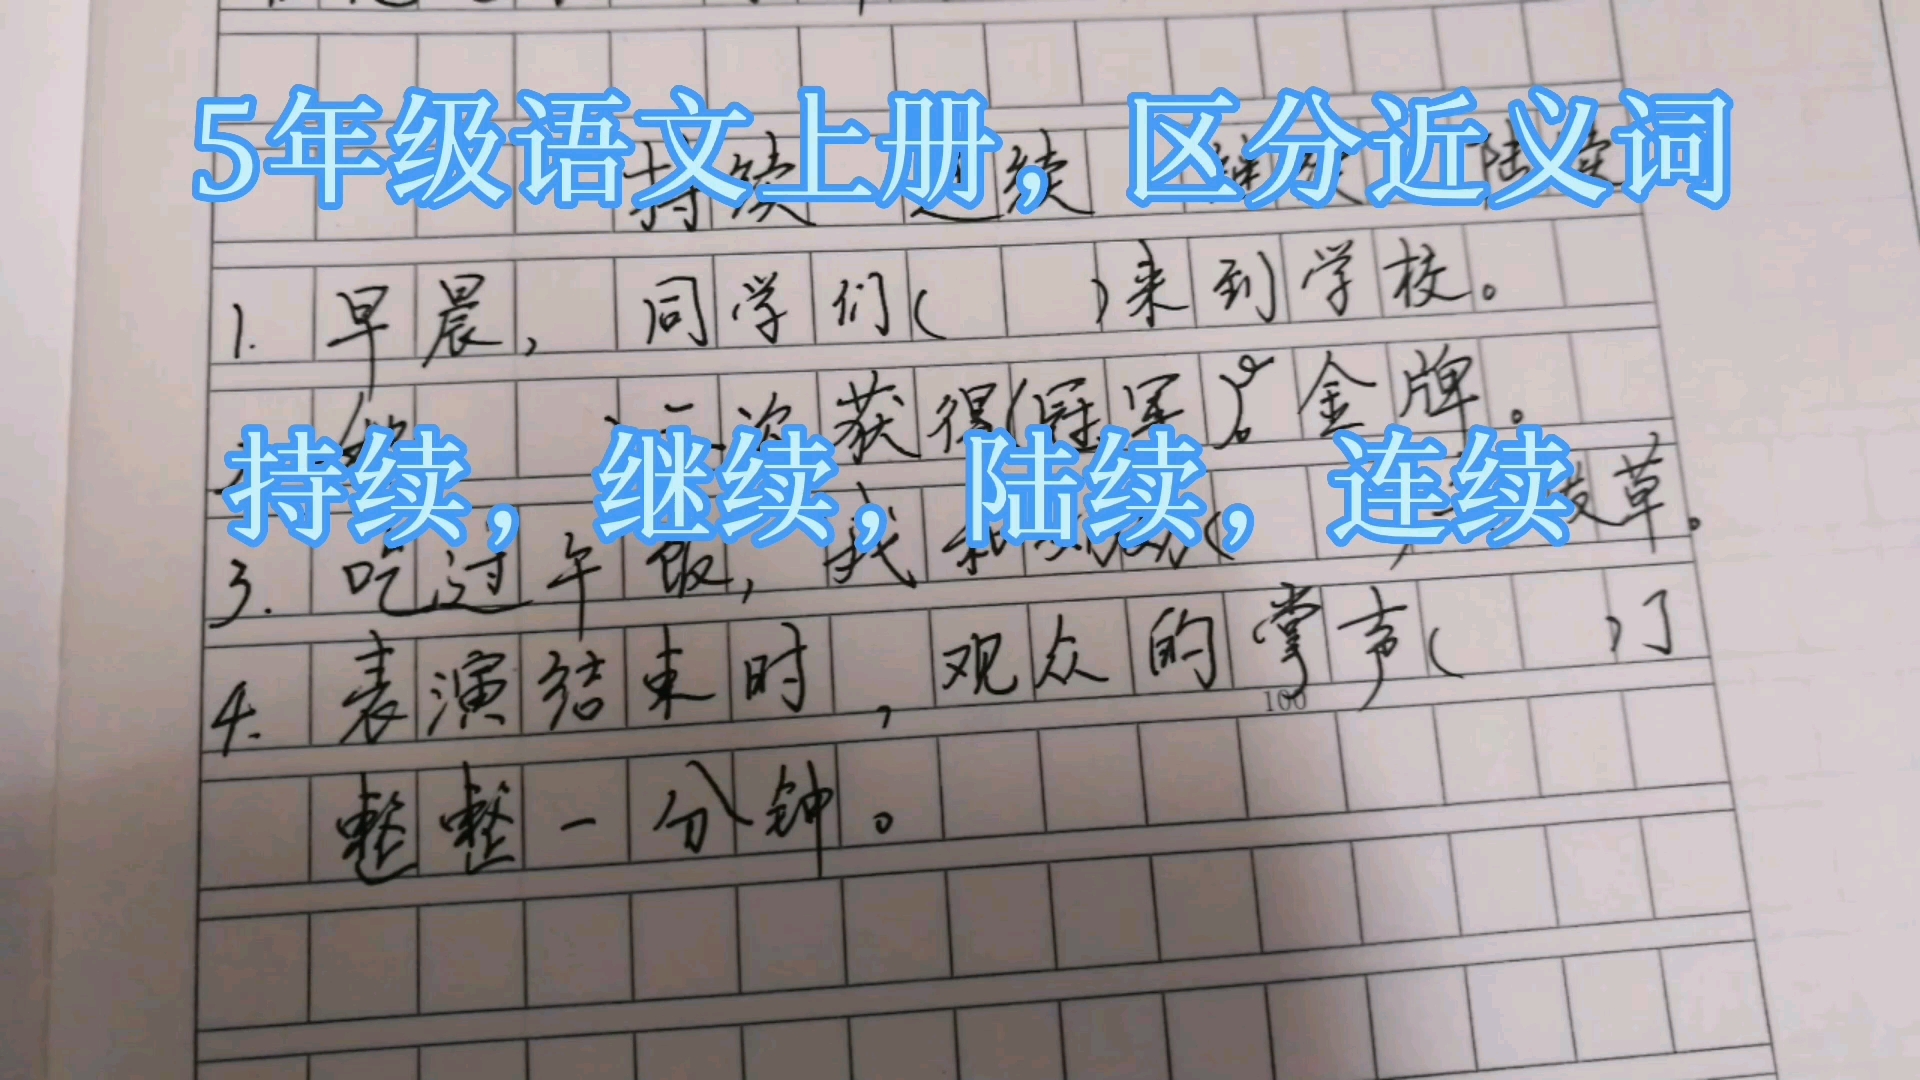 5年级语文上册，区分近义词
持续 连续 继续 陆续
1. 早晨，同学们( )来到学校。
次获得(冠军)金牌。
持续，继续，陆续，连续
3. 吃过午饭，我和 ( ) 草。
4. 表演结束时，观众的掌声( )了
100
整整一分钟。